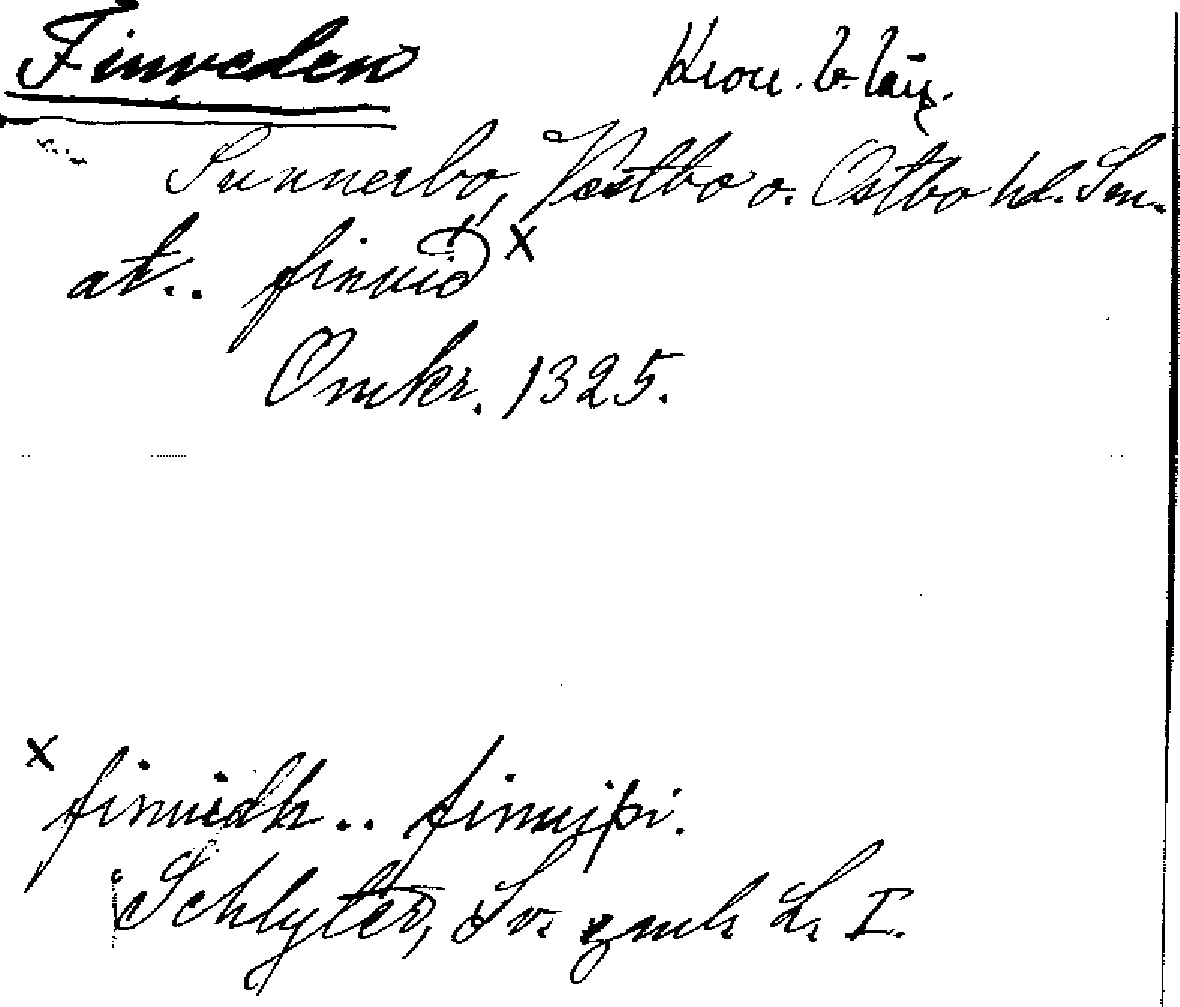 Finveden
Kron. b. län.
Sunnerbo, Västbo o. Östbo hd. Sm.
at.. finuið x
Omkr. 1325.
x finuidh.. finuiþi.
Schlyter, Sv. gml. L. I.